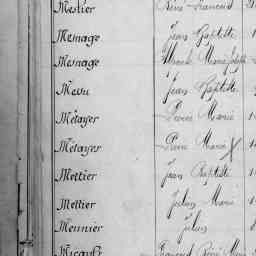 Mestier René François
Menage Jean Baptiste
Menage Marie Joseph
Menu Jean Baptiste
Métayer Pierre Marie
Métayer Pierre Marie
Mettier Jean Baptiste
Mettier Julien Marie
Meunier Julien
Micault René Marie